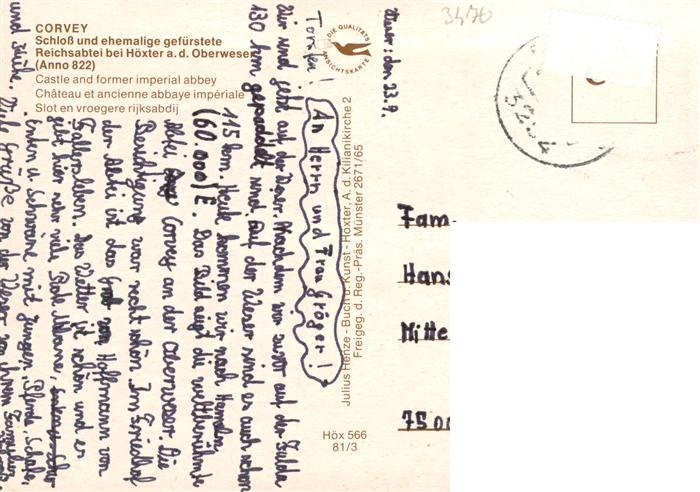 CORVEY
Schloß und ehemalige gefürstete
Reichsabtei bei Höxter a. d. Oberweser
(Anno 822)
Castle and former imperial abbey
Château et ancienne abbaye impériale
Slot en vroegere rijksabdij
DIE QUALITÄTS
ANSICHTSKARTE
3470
Weser: den 23.9.
An Herrn und Frau Gröger!
Wir sind jetzt auf der Weser. Nachdem wir zuvor auf der Fulda
130 km gepaddelt sind, auf der Weser sind es auch schon
115 km. Heute kommen wir nach Hameln,
(60.000) E. Das Bild zeigt die weltberühmte
Abtei Corvey an der Oberweser. Die
Besichtigung war recht schön. Im Friedhof
der Abtei ist das Grab von Hoffmann von
Fallersleben. Das Wetter ist schön und es
gibt hier sehr viele
Enten u. Schwäne mit Jungen, Pferde, Schafe,
und Kühe. Viele Grüße von der Weser von Ihrem
Julius Henze - Buch u. Kunst - Höxter, A. d. Kilianikirche 2
Freigeg. d. Reg.-Präs. Münster 2671/65
Höx 566
81/3
Fam
Hans
Mitte
75 00